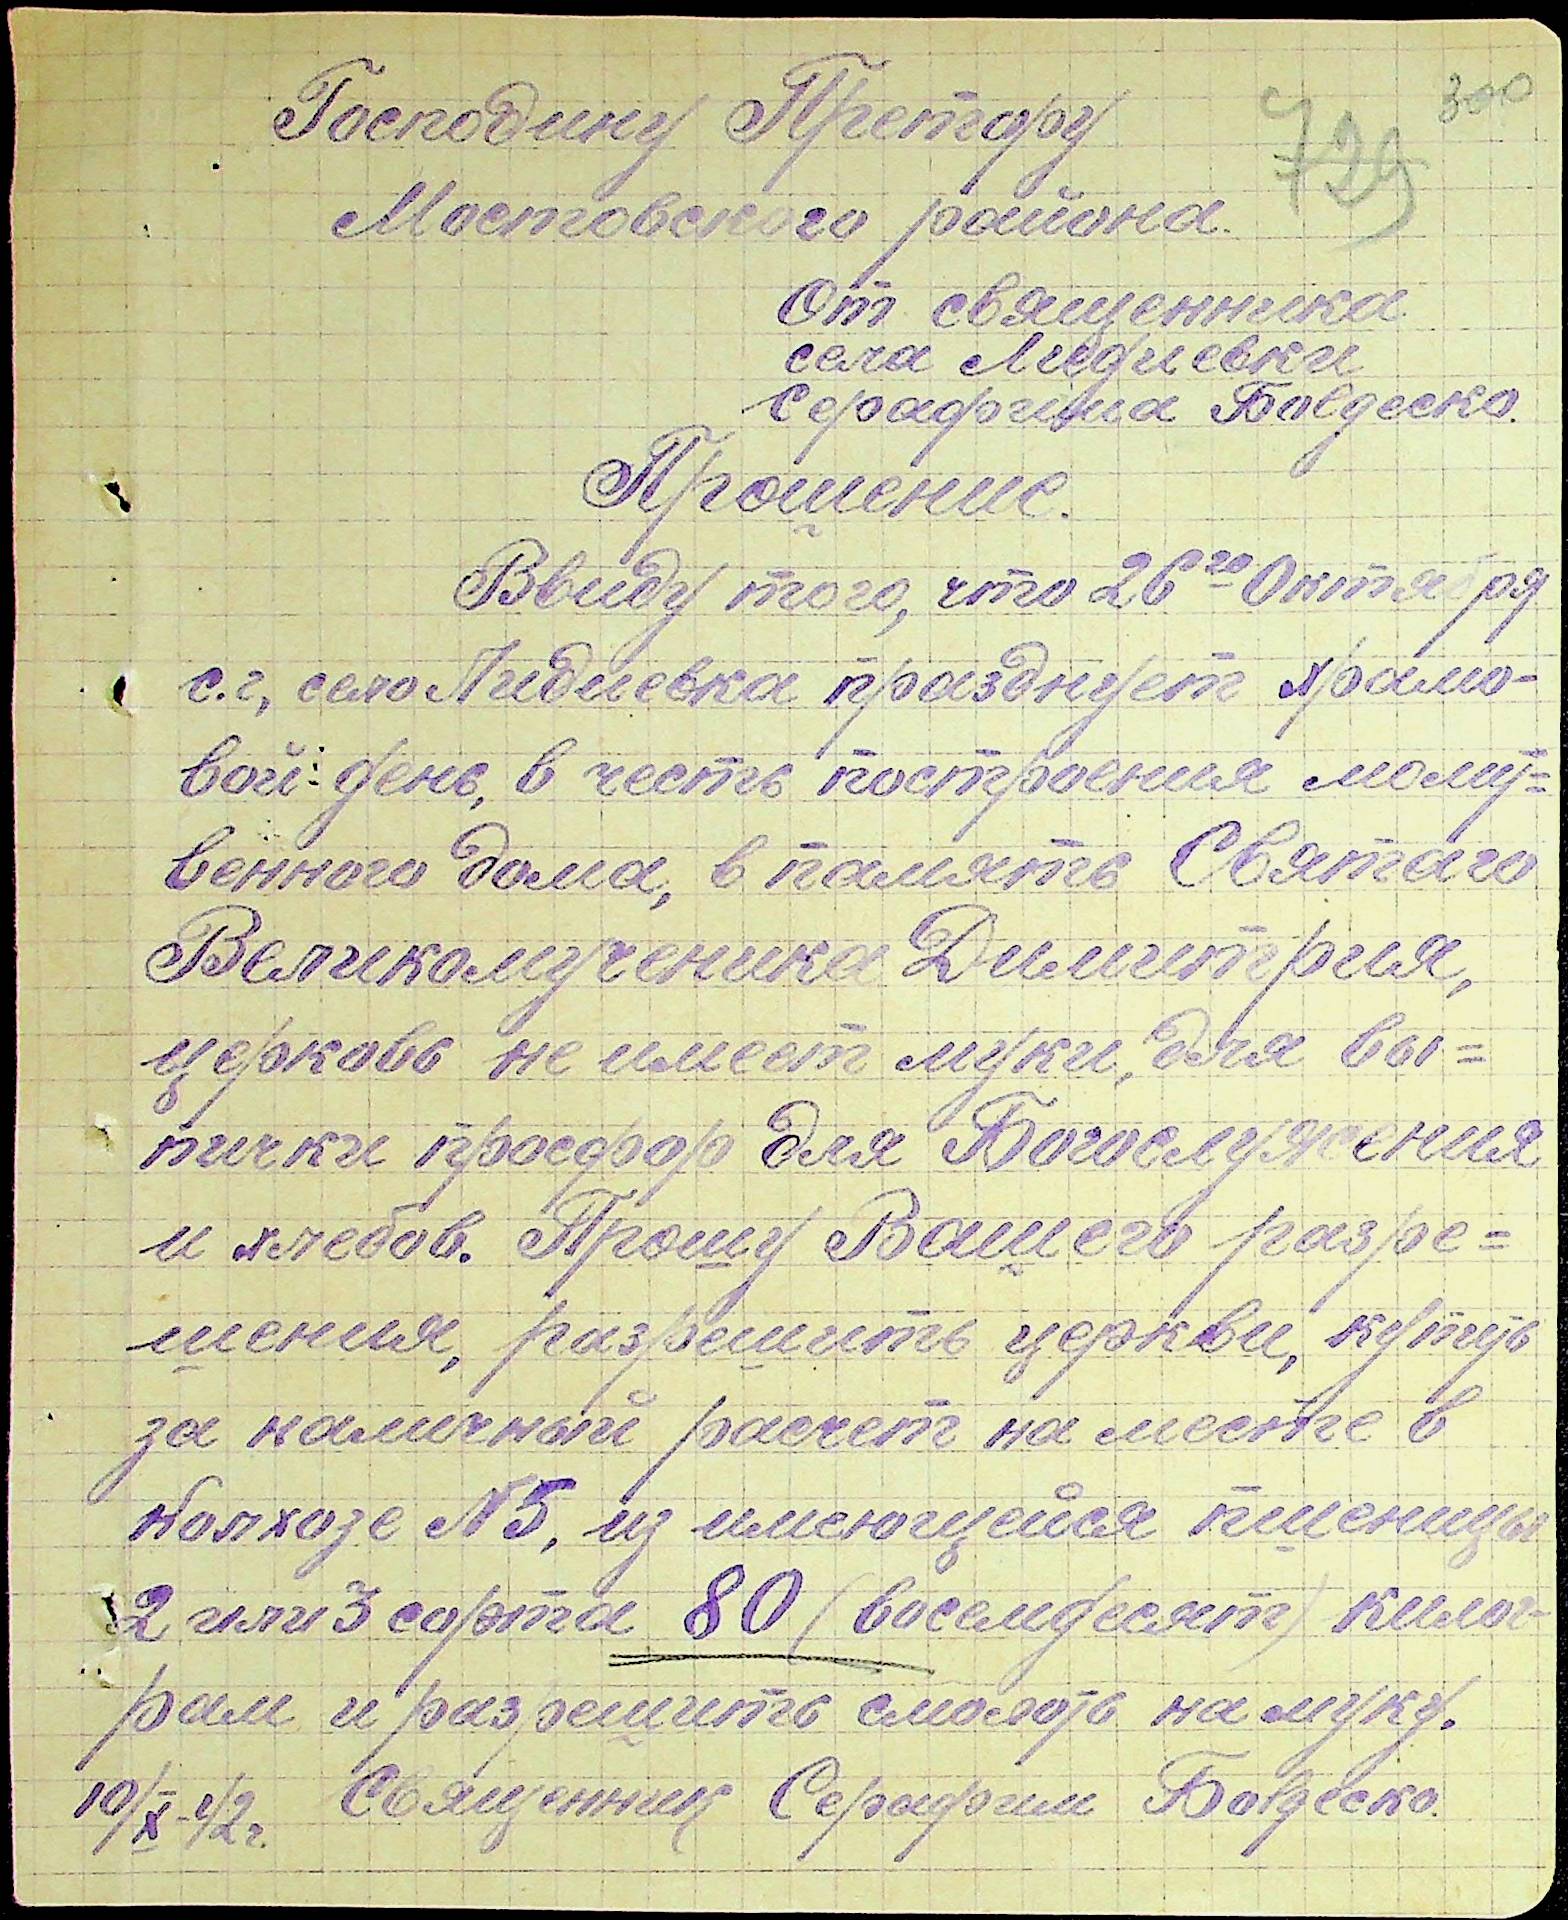 300
729
Господину Претору
Мостовского района.
От священника
села Лидиевки
Серафима Бовдеско.
Прошение.
Ввиду того, что 26го Октября
с.г, село Лидиевка празднует храмо-
вой день, в честь построения молит=
венного дома, в память Святаго
Великомученика Димитрия,
церковь не имеет муки, для вы=
пички просфор для Богослужения
и хлебов. Прошу Вашего разре=
шения, разрешить церкви, купить
за наличный расчет на месте в
колхозе №5, из имеющейся пшеницы
2 или 3 сорта 80 (восемдесят) килог-
рам и разрешить смолоть на муку.
10/X-42г. Священник Серафим Бовдеско.